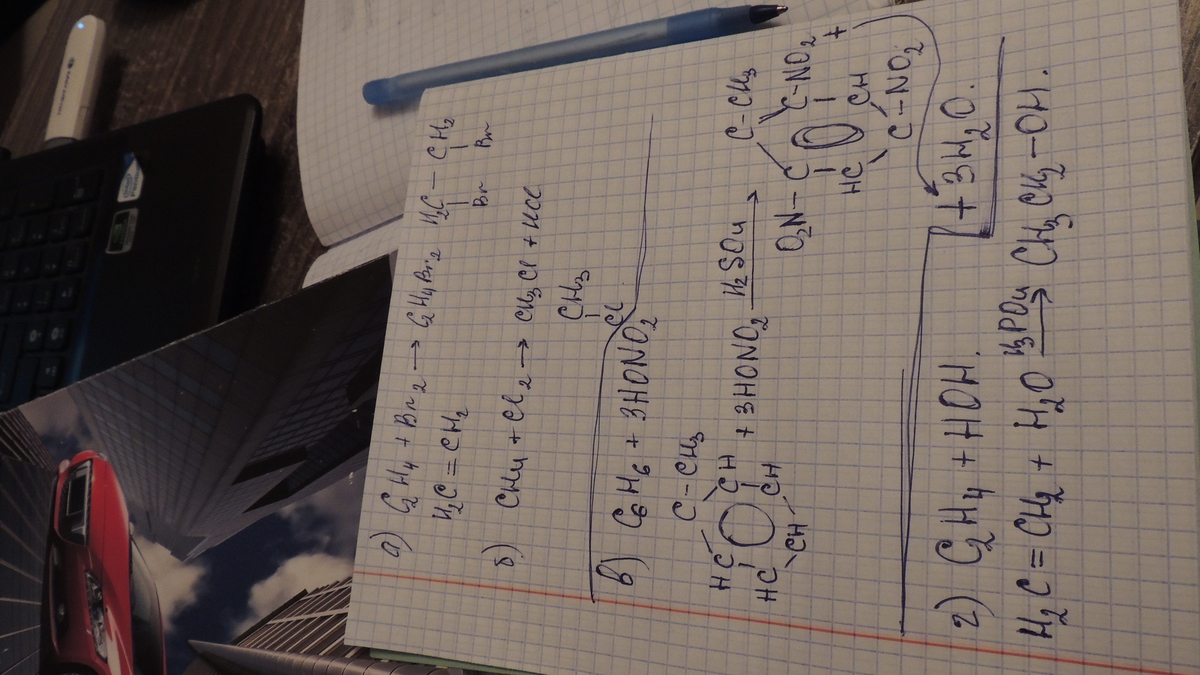 а) C₂H₄ + Br₂ → C₂H₄Br₂ H₂C - CH₂
H₂C = CH₂ Br Br
б) CH₄ + Cl₂ → CH₃Cl + HCl
CH₃
Cl
в) C₆H₆ + 3HONO₂
C - CH₃
HC CH + 3HONO₂ H₂SO₄ →
HC CH
CH
C - CH₃
O₂N - C C - NO₂ +
HC CH
C - NO₂
+ 3H₂O.
г) C₂H₄ + HOH.
H₂C = CH₂ + H₂O H₃PO₄ → CH₃CH₂ - OH.